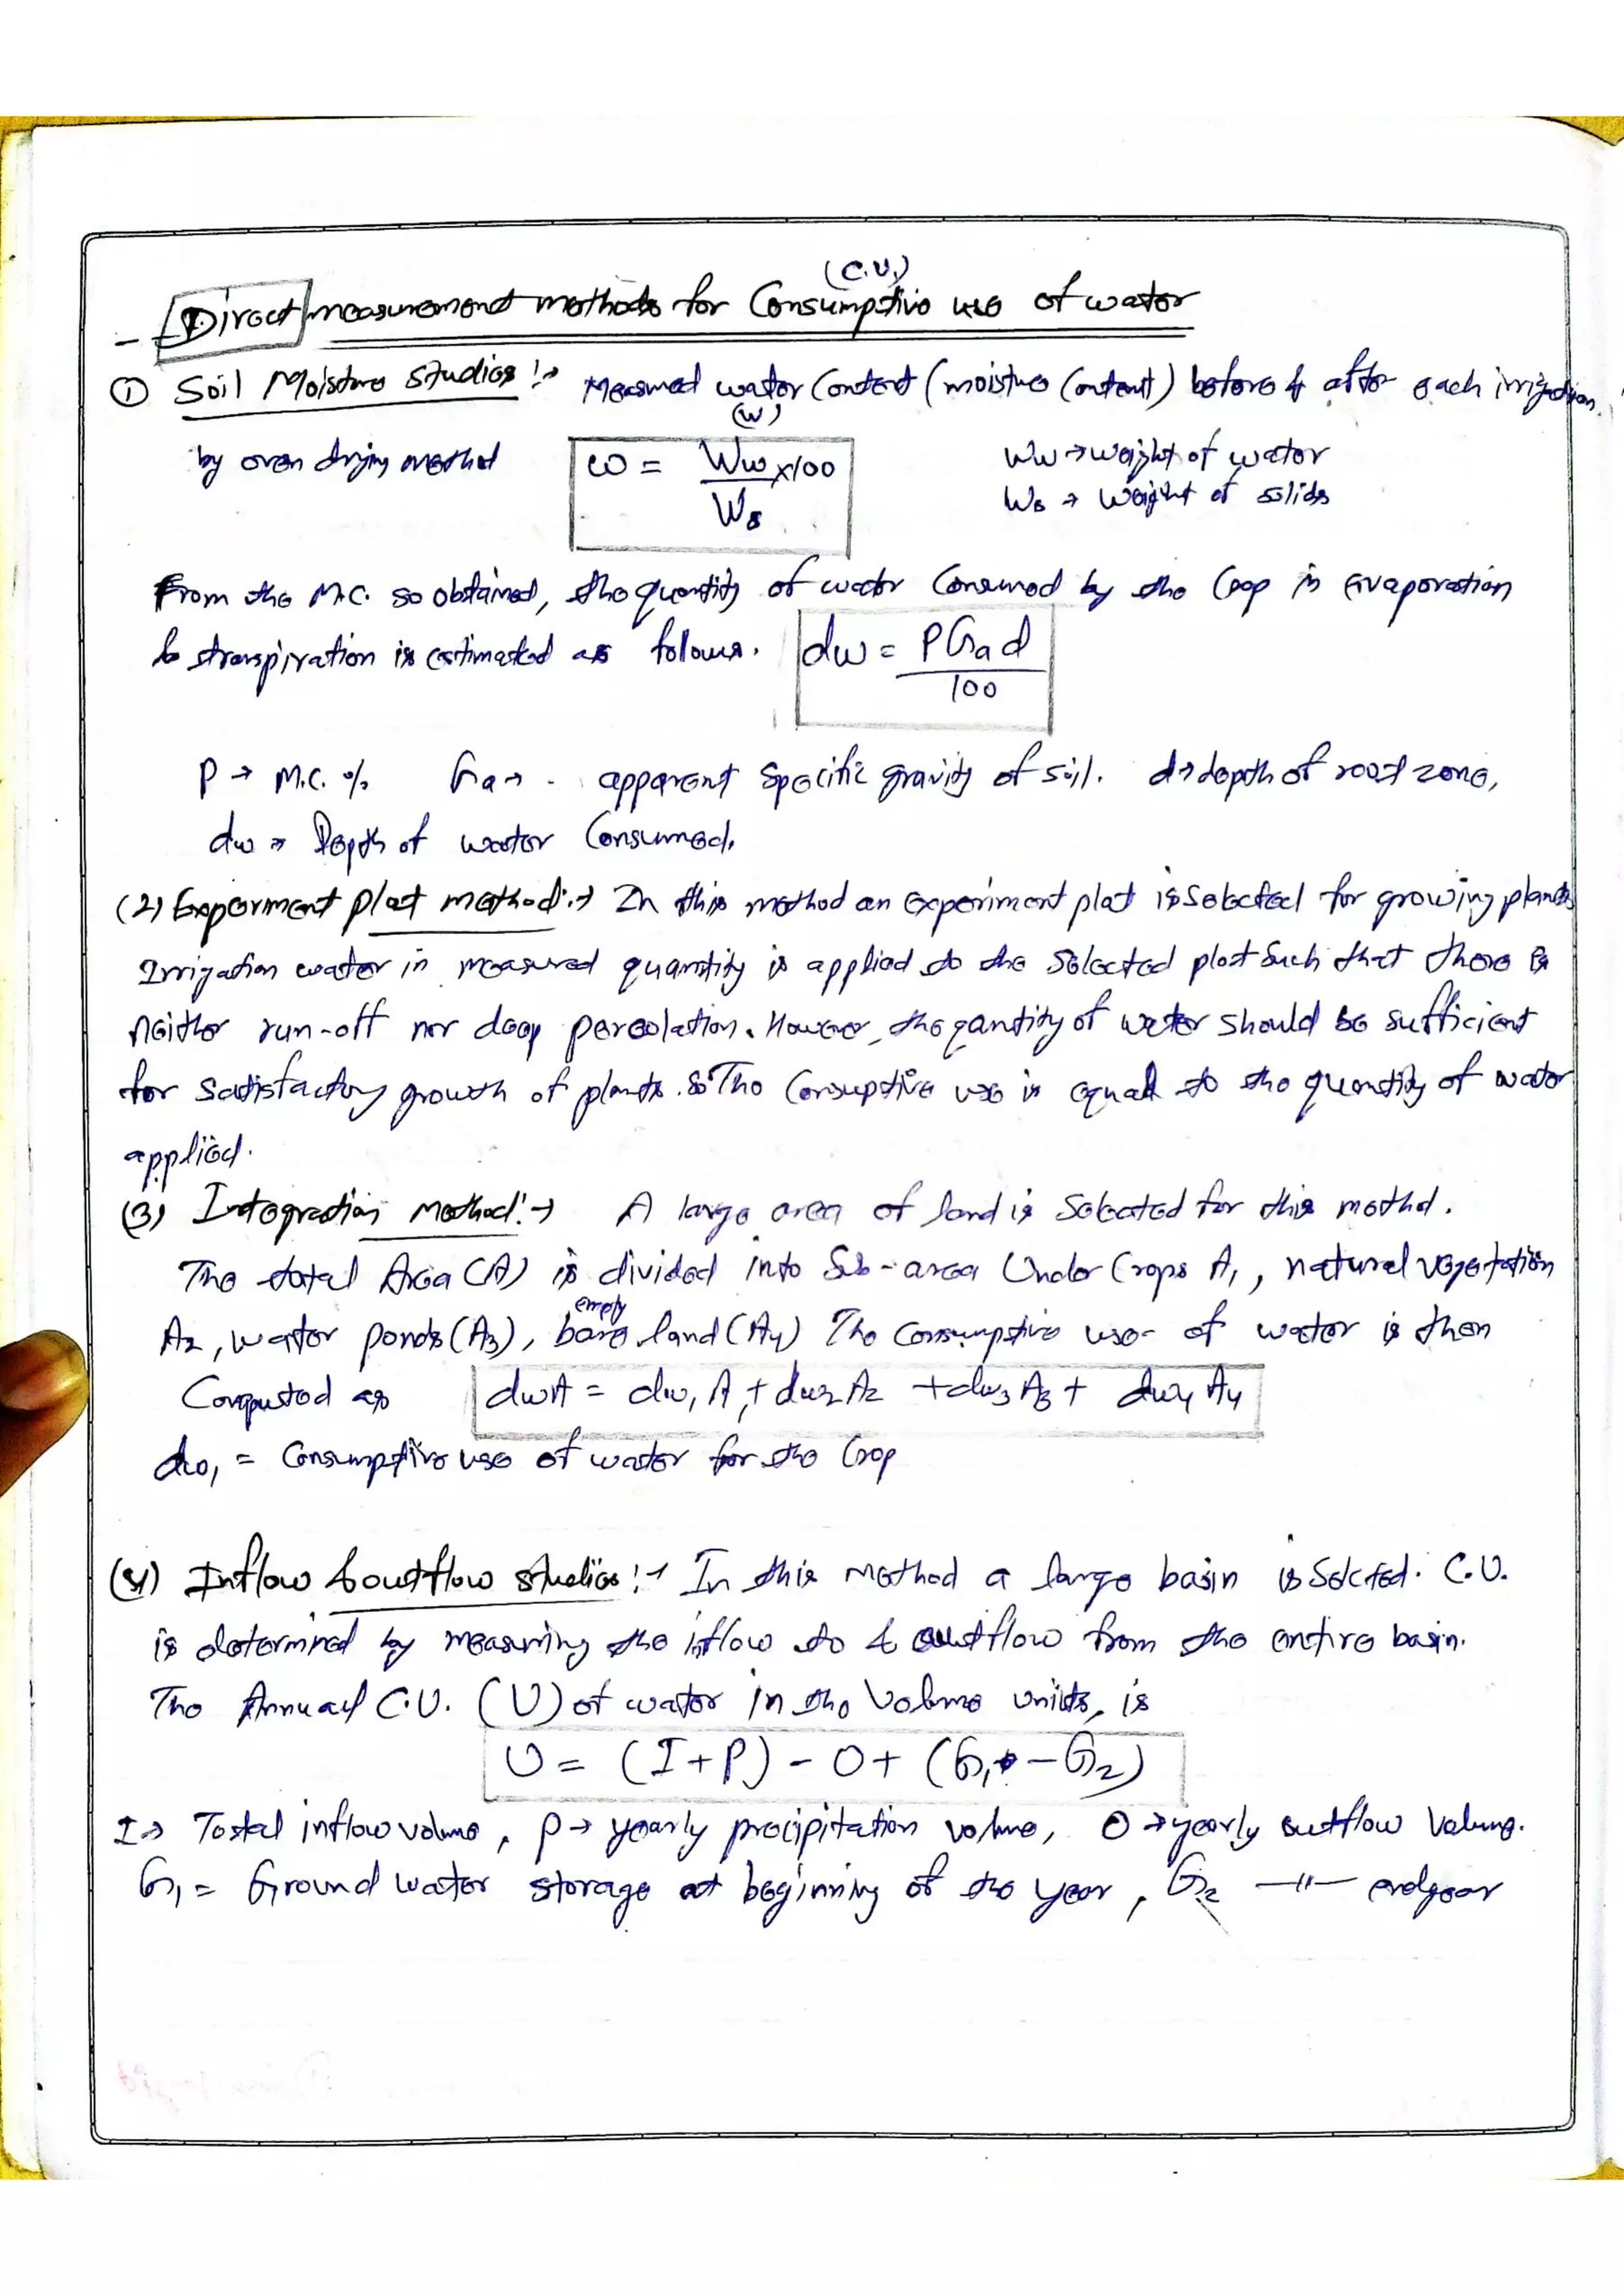 (C.U.)
- Direct measurement methods for Consumptive use of water
① Soil Moisture Studies :→ Measured water Content (moisture Content) before & after each irrigation.
(w)
by oven drying method ω = Ww/Ws x100 Ww → weight of water
Ws → weight of solids
From the M.C. so obtained, the quantity of water Consumed by the Crop in Evaporation
& transpiration is estimated as follows. dw = PGad/100
P → M.C. % Ga → apparent Specific gravity of soil. d → depth of root zone,
dw → Depth of water Consumed.
(2) Experiment plot method :→ In this method an experiment plot is Selected for growing plants
Irrigation water in measured quantity is applied to the Selected plot Such that there is
neither run-off nor deep percolation. However, the qantity of water should be sufficient
for satisfactory growth of plants. So The Consuptive use is equal to the quantity of water
applied.
(3) Integration Method :→ A large area of land is Selected for this methd.
The total Area (A) is divided into Sub-area Under Crops A1, natural vegetation
empty
A2, water ponds (A3), bare land (A4) The Consumptive use of water is then
Computed as dwA = dw1 A1 + dw2 A2 + dw3 A3 + dw4 A4
dw1 = Consumptive use of water for the Crop
(4) Inflow & outflow studies :→ In this method a large basin is Selcted. C.U.
is determined by measuring the inflow to & outflow from the entire basin.
The Annual C.U. (U) of water in the Volume units, is
U = (I+P) - O + (G1 - G2)
I → Total inflow volume, P → yearly precipitation volume, O → yearly outflow Volume.
G1 = Ground water storage at beginning of the year, G2 —〃— endyear